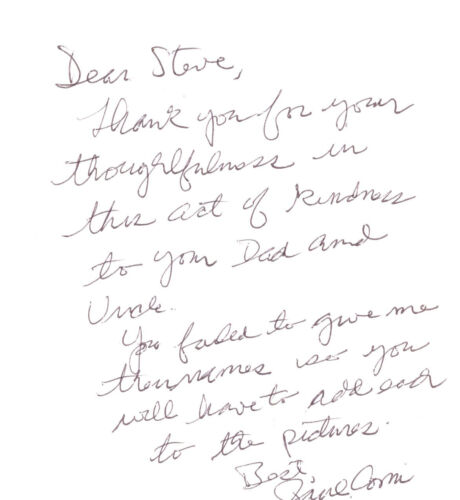 Dear Steve,
Thank you for your
thoughtfulness in
this act of kindness
to your Dad and
Uncle.
You failed to give me
their names so you
will have to add each
to the pictures.
Best